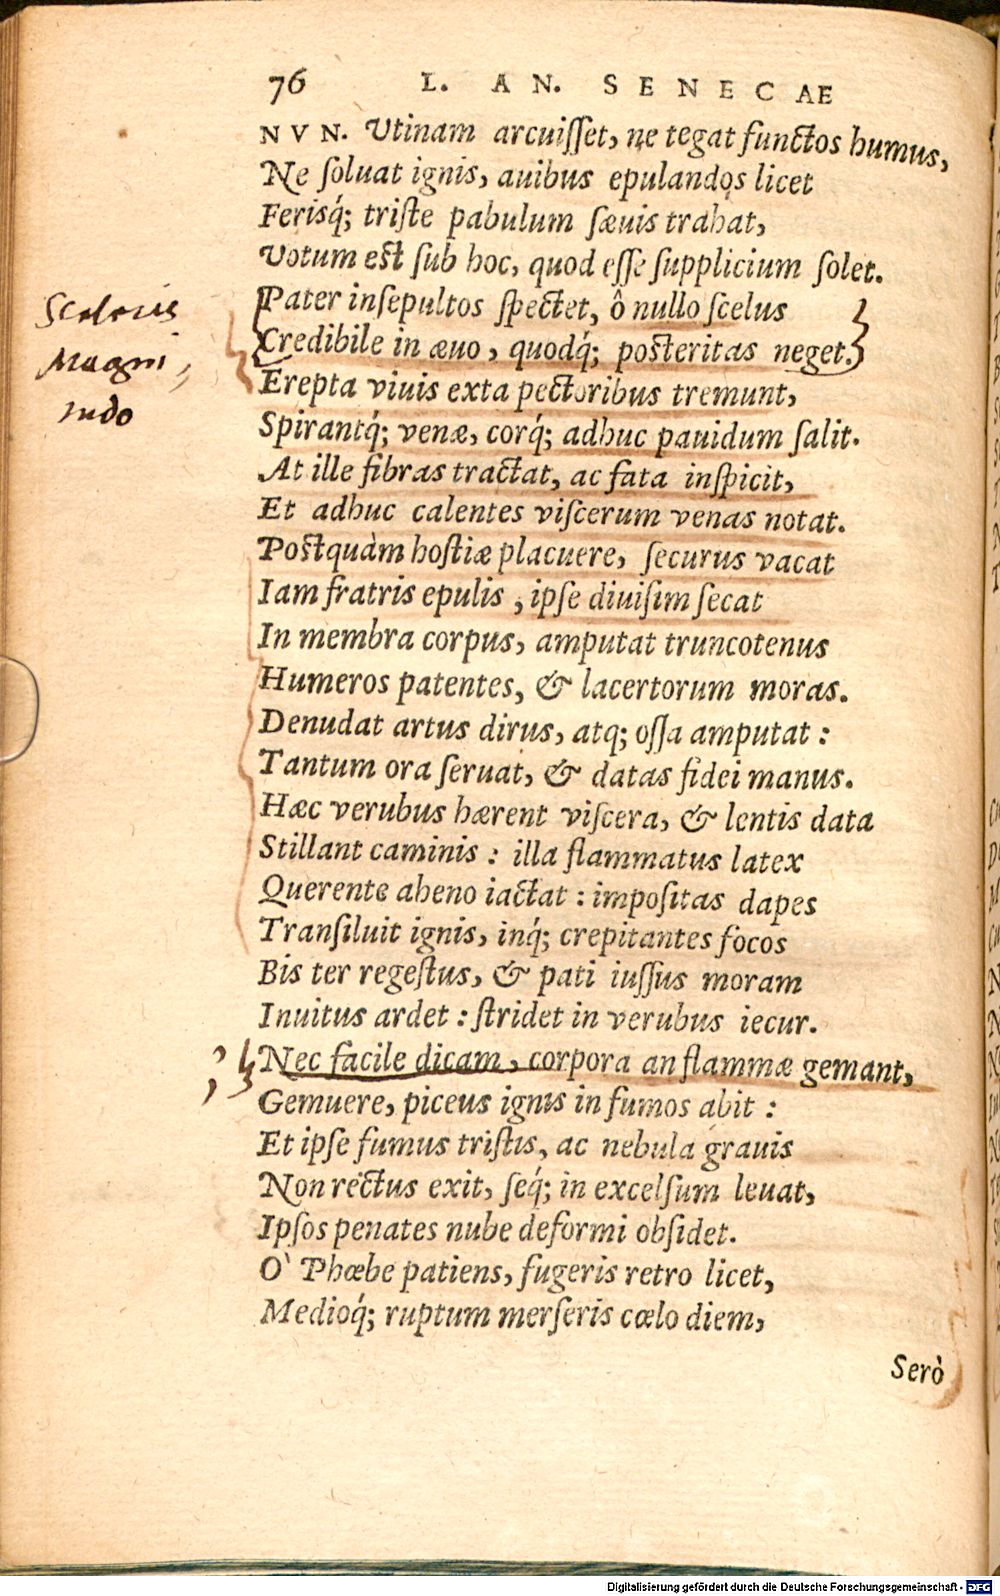 76 L. AN. SENECAE
NVN. Vtinam arcuiſſet, ne tegat functos humus,
Ne ſoluat ignis, auibus epulandos licet
Ferisq́; triſte pabulum ſæuis trahat,
Votum est ſub hoc, quod eſſe ſupplicium ſolet.
Pater inſepultos ſpectet, ô nullo ſcelus
Credibile in æuo, quodq́; posteritas neget.
Erepta viuis exta pectoribus tremunt,
Spirantq́; venæ, corq́; adhuc pauidum ſalit.
At ille fibras tractat, ac fata inſpicit,
Et adhuc calentes viſcerum venas notat.
Postquàm hoſtiæ placuere, ſecurus vacat
Iam fratris epulis, ipſe diuiſim ſecat
In membra corpus, amputat truncotenus
Humeros patentes, & lacertorum moras.
Denudat artus dirus, atq; oſſa amputat:
Tantum ora ſeruat, & datas fidei manus.
Hæc verubus hærent viſcera, & lentis data
Stillant caminis: illa flammatus latex
Querente aheno iactat: impoſitas dapes
Tranſiluit ignis, inq́; crepitantes focos
Bis ter regeſtus, & pati iuſſus moram
Inuitus ardet: ſtridet in verubus iecur.
Nec facile dicam, corpora an flammæ gemant,
Gemuere, piceus ignis in fumos abit:
Et ipſe fumus triſtis, ac nebula grauis
Non rectus exit, ſeq́; in excelſum leuat,
Ipſos penates nube deformi obſidet.
O' Phœbe patiens, fugeris retro licet,
Medioq́; ruptum merſeris cœlo diem,
Serò
Sceleris
Magni
tudo
Digitalisierung gefördert durch die Deutsche Forschungsgemeinschaft - DFG